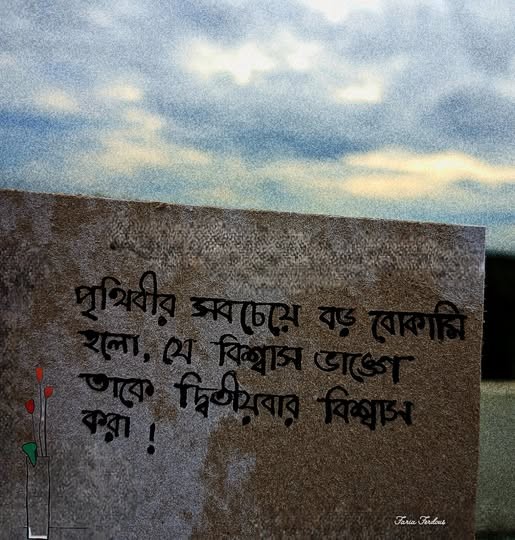 পৃথিবীর সবচেয়ে বড় বোকামি
হলো, যে বিশ্বাস ভাঙ্গে
তাকে দ্বিতীয়বার বিশ্বাস
করা !
Faria Ferdous